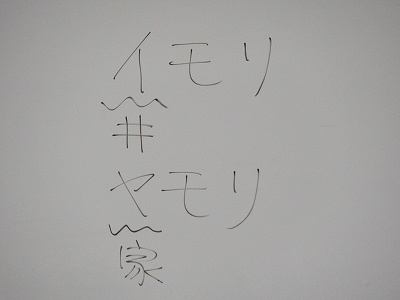 イモリ
井
ヤモリ
家